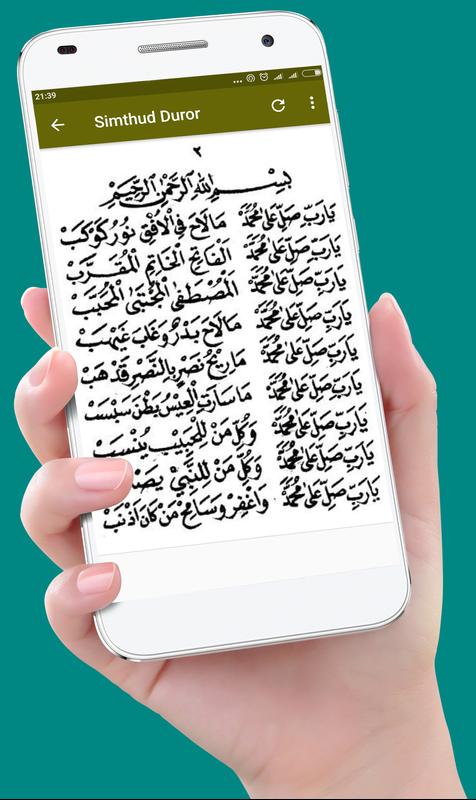 21:39
Simthud Duror
٢
بِسْمِ اللهِ الرَّحْمٰنِ الرَّحِيْمِ
يَارَبِّ صَلِّ عَلَى مُحَمَّدْ مَالَاحَ فِي الْأُفُقِ نُوْرُ كَوْكَبْ
يَارَبِّ صَلِّ عَلَى مُحَمَّدْ الْفَاتِحِ الْخَاتِمِ الْمُقَرَّبْ
يَارَبِّ صَلِّ عَلَى مُحَمَّدْ الْمُصْطَفَى الْمُجْتَبَى الْمُحَبَّبْ
يَارَبِّ صَلِّ عَلَى مُحَمَّدْ مَالَاحَ بَدْرٌ وَغَابَ غَيْهَبْ
يَارَبِّ صَلِّ عَلَى مُحَمَّدْ مَارِيْحُ نَصْرٍ بِالنَّصْرِ قَدْ هَبْ
يَارَبِّ صَلِّ عَلَى مُحَمَّدْ مَاسَارَتِ الْعِيْسُ بَطْنَ سَبْسَبْ
يَارَبِّ صَلِّ عَلَى مُحَمَّدْ وَكُلِّ مَنْ لِلْحَبِيْبِ يُنْسَبْ
يَارَبِّ صَلِّ عَلَى مُحَمَّدْ وَكُلِّ مَنْ لِلنَّبِيِّ
يَارَبِّ صَلِّ عَلَى مُحَمَّدْ وَاغْفِرْ وَسَامِحْ مَنْ كَانَ أَذْنَبْ